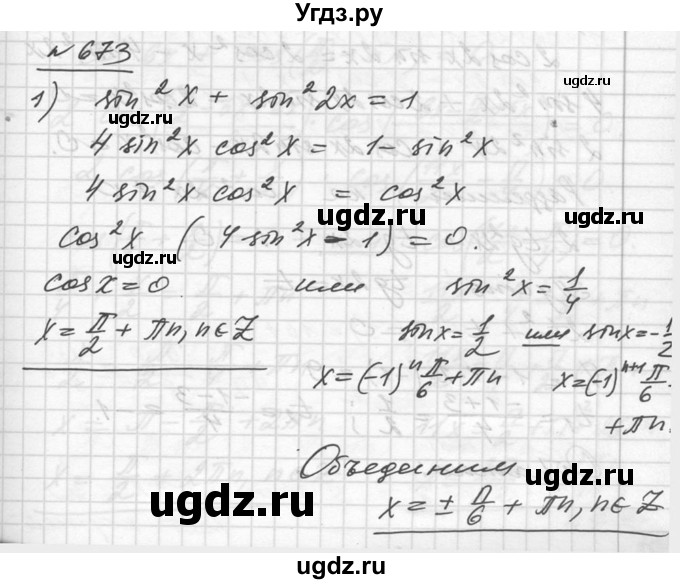 Угдз.ру
№ 673
1) sin²x + sin²2x = 1
4 sin²x cos²x = 1 - sin²x
4 sin²x cos²x = cos²x
cos²x (4 sin²x - 1) = 0.
cos x = 0 или sin²x = 1/4
x = π/2 + πn, n∈Z sinx = 1/2 или sinx = -1/2
x = (-1)ⁿ π/6 + πn x = (-1)ⁿ⁺¹ π/6
+ πn.
Объединим
x = ± π/6 + πn, n∈Z
ugdz.ru
ugdz.ru
ugdz.ru
ugdz.ru
ugdz.ru
ugdz.ru
ugdz.ru
ugdz.ru
ugdz.ru
ugdz.ru
ugdz.ru